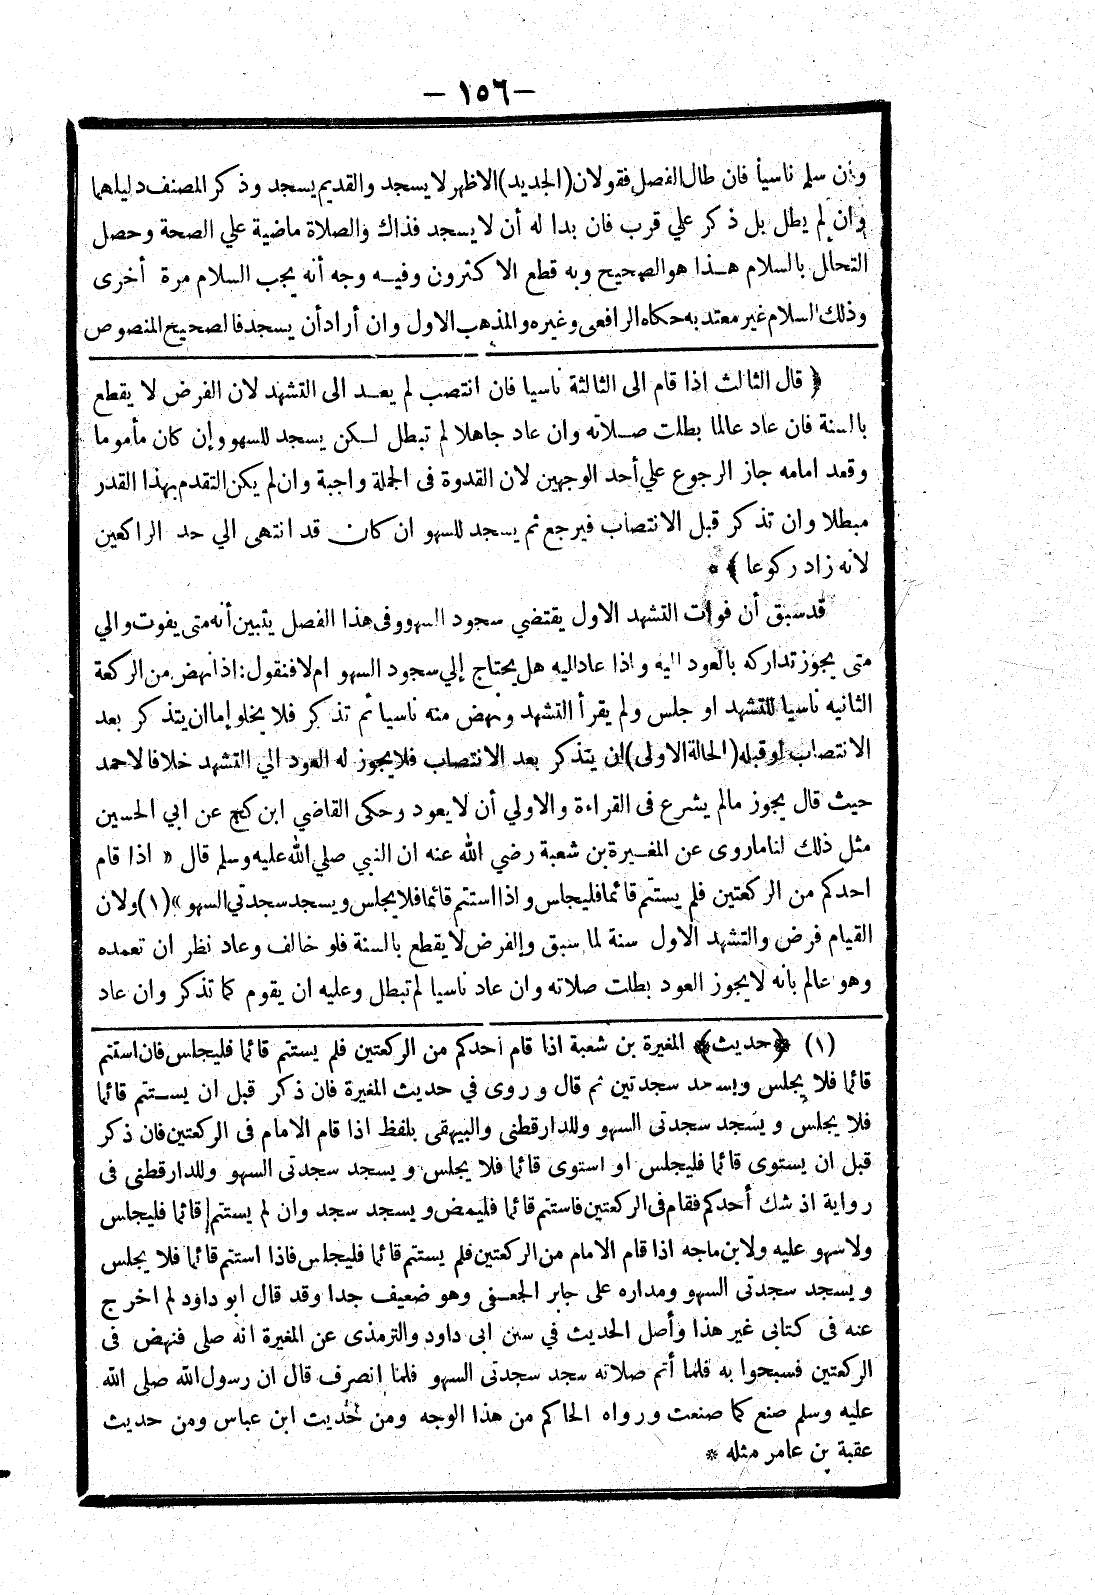 — ١٥٦ —
وإن سلم ناسيأ فان طال الفصل فقولان (الجديد) الاظهر لا يسجد والقديم يسجد وذكر المصنف دليلهما
وإن لم يطل بل ذكر علي قرب فان بدا له أن لا يسجد فذاك والصلاة ماضية علي الصحة وحصل
التحلل بالسلام هذا هو الصحيح وبه قطع الاكثرون وفيه وجه أنه يجب السلام مرة أخرى
وذلك السلام غير معتد به حكاه الرافعى وغيره والمذهب الاول وان أراد أن يسجد فالصحيح المنصوص
﴿ قال الثالث اذا قام الى الثالثة ناسيا فان انتصب لم يعد الى التشهد لان الفرض لا يقطع
بالسنة فان عاد عالما بطلت صلاته وان عاد جاهلا لم تبطل لكن يسجد للسهو وإن كان مأموما
وقعد امامه جاز الرجوع علي أحد الوجهين لان القدوة فى الجملة واجبة وان لم يكن التقدم بهذا القدر
مبطلا وان تذكر قبل الانتصاب فيرجع ثم يسجد للسهو ان كان قد انتهى الي حد الراكعين
لانه زاد ركوعا ﴾ *
قد سبق أن فوات التشهد الاول يقتضي سجود السهو وفى هذا الفصل يتبين أنه متى يفوت والي
متى يجوز تداركه بالعود اليه واذا عاد اليه هل يحتاج إلي سجود السهو ام لا فنقول: اذا نهض من الركعة
الثانيه ناسيا للتشهد او جلس ولم يقرأ التشهد ونهض منه ناسيا ثم تذكر فلا يخلو إما ان يتذكر بعد
الانتصاب او قبله (الحالة الاولى) ان يتذكر بعد الانتصاب فلا يجوز له العود الي التشهد خلافا لاحمد
حيث قال يجوز مالم يشرع فى القراءة والاولي أن لا يعود وحكى القاضي ابن كج عن ابي الحسين
مثل ذلك لنا ماروى عن المغيرة بن شعبة رضي الله عنه ان النبي صلي الله عليه وسلم قال « اذا قام
احدكم من الركعتين فلم يستتم قائما فليجلس واذا استتم قائما فلا يجلس ويسجد سجدتي السهو » (١) ولان
القيام فرض والتشهد الاول سنة لما سبق والفرض لا يقطع بالسنة فلو خالف وعاد نظر ان تعمده
وهو عالم بانه لا يجوز العود بطلت صلاته وان عاد ناسيا لم تبطل وعليه ان يقوم كما تذكر وان عاد
(١) ﴿حديث﴾ المغيرة بن شعبة اذا قام أحدكم من الركعتين فلم يستتم قائما فليجلس فان استتم
قائما فلا يجلس ويسجد سجدتين ثم قال وروى في حديث المغيرة فان ذكر قبل ان يستتم قائما
فلا يجلس ويسجد سجدتى السهو وللدارقطنى والبيهقى بلفظ اذا قام الامام فى الركعتين فان ذكر
قبل ان يستوى قائما فليجلس او استوى قائما فلا يجلس ويسجد سجدتى السهو وللدارقطنى فى
رواية اذ شك أحدكم فقام فى الركعتين فاستتم قائما فليمض ويسجد سجد وان لم يستتم قائما فليجلس
ولا سهو عليه ولابن ماجه اذا قام الامام من الركعتين فلم يستتم قائما فليجلس فاذا استتم قائما فلا يجلس
ويسجد سجدتى السهو ومداره على جابر الجعفى وهو ضعيف جدا وقد قال ابو داود لم اخرج
عنه فى كتابى غير هذا وأصل الحديث في سنن ابى داود والترمذى عن المغيرة انه صلى فنهض فى
الركعتين فسبحوا به فلما أتم صلاته سجد سجدتى السهو فلما انصرف قال ان رسول الله صلى الله
عليه وسلم صنع كما صنعت ورواه الحاكم من هذا الوجه ومن حديث ابن عباس ومن حديث
عقبة بن عامر مثله *